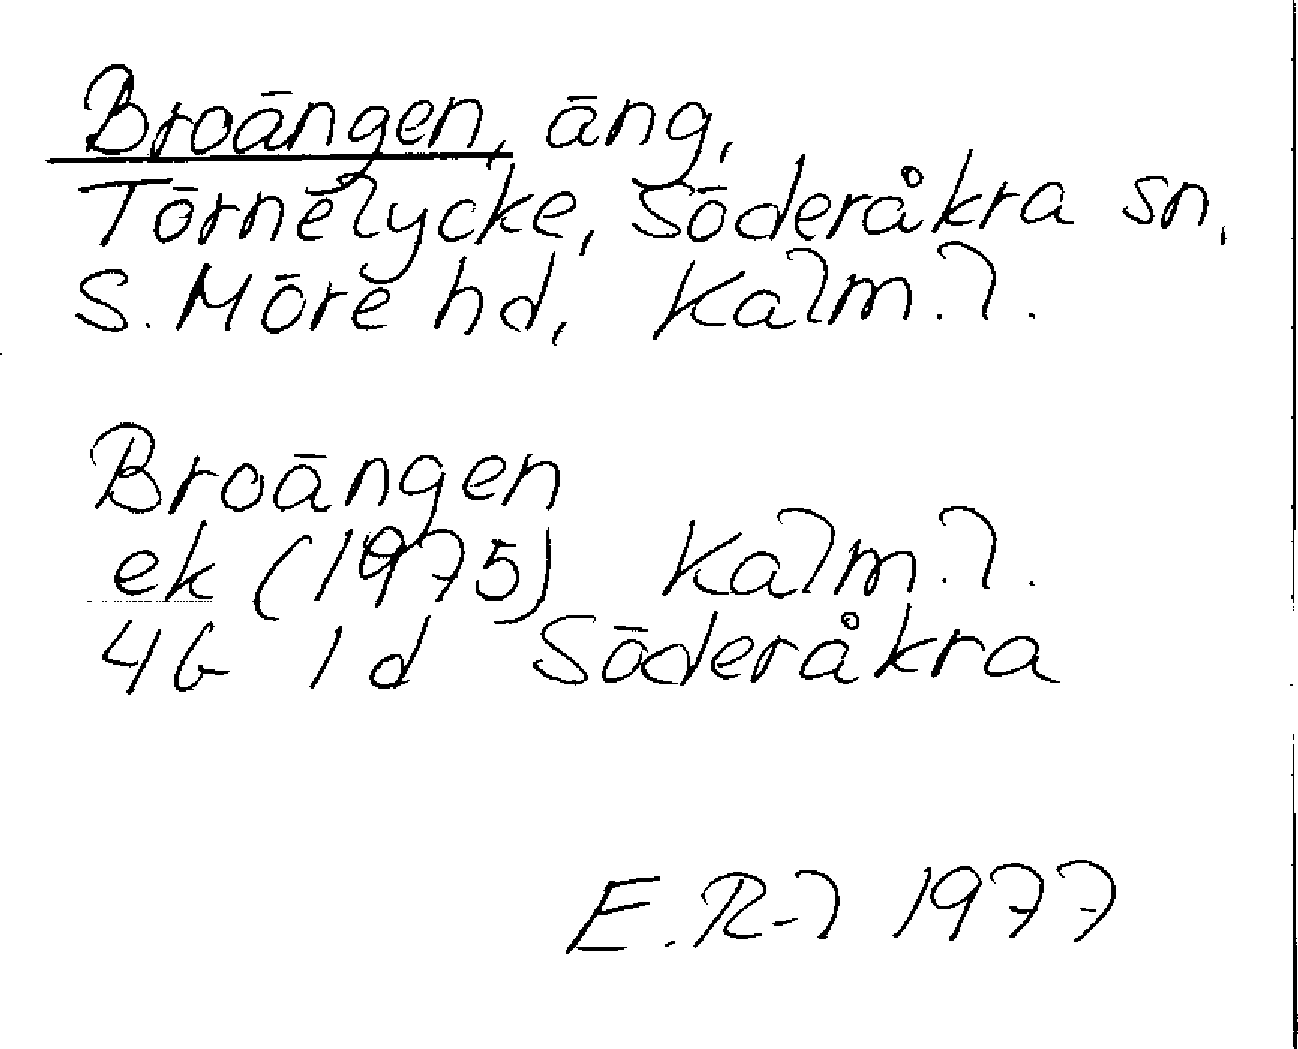 Broängen, äng,
Törnelycke, Söderåkra sn,
S. Möre hd, Kalm. l.
Broängen
ek (1975) Kalm. l.
4G 1d Söderåkra
E. R-l 1977